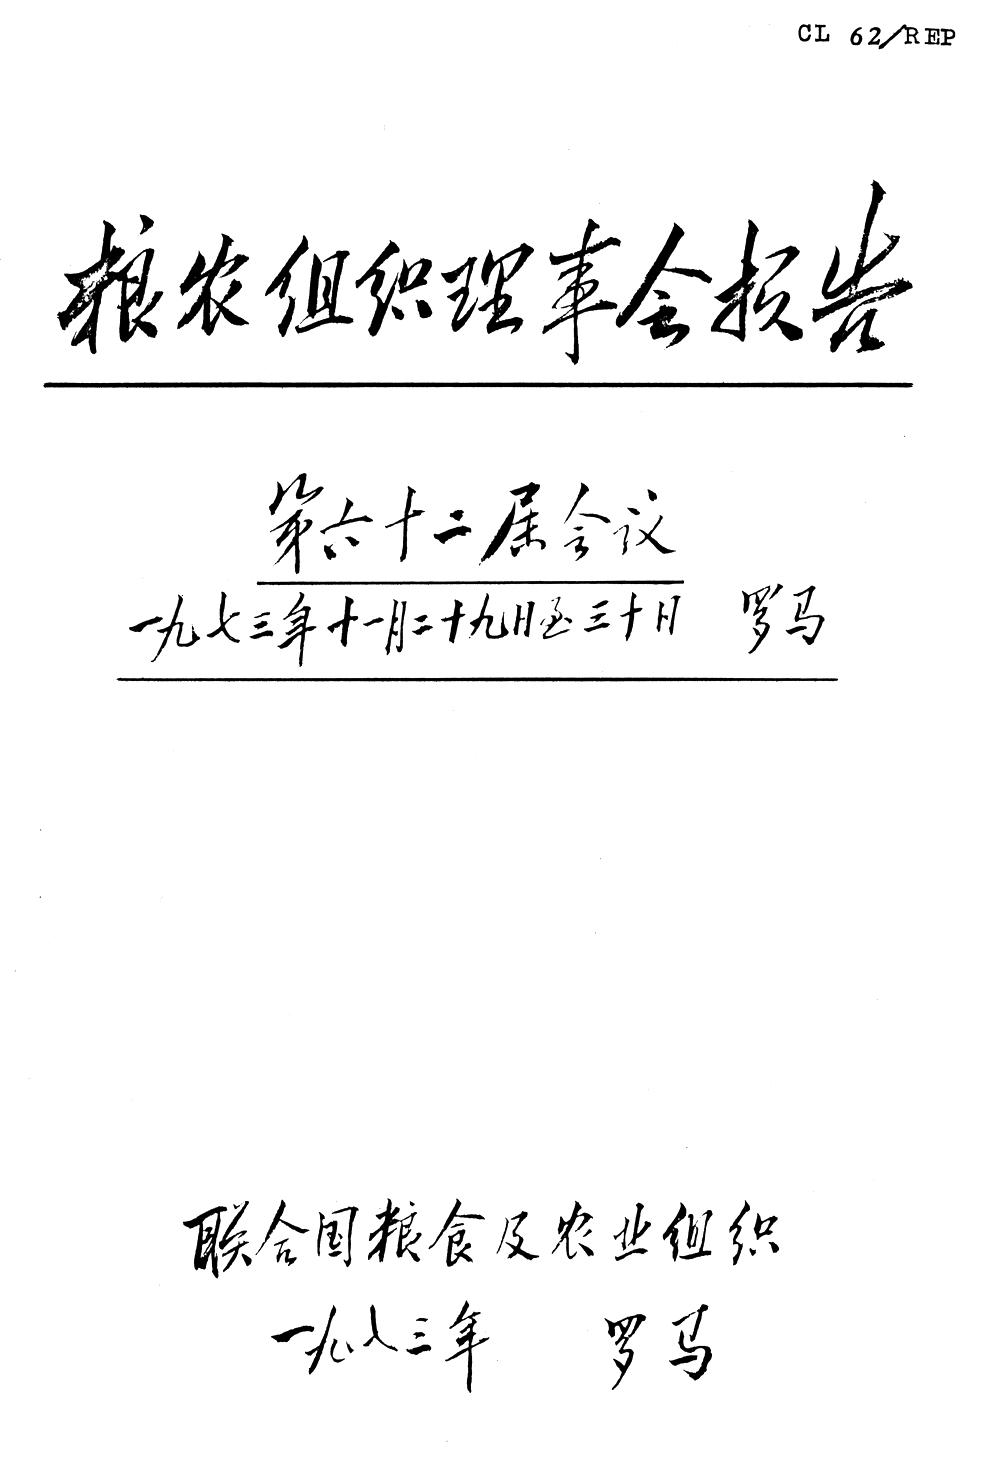 CL 62/REP
粮农组织理事会报告
第六十二届会议
一九七三年十一月二十九日至三十日 罗马
联合国粮食及农业组织
一九七三年 罗马